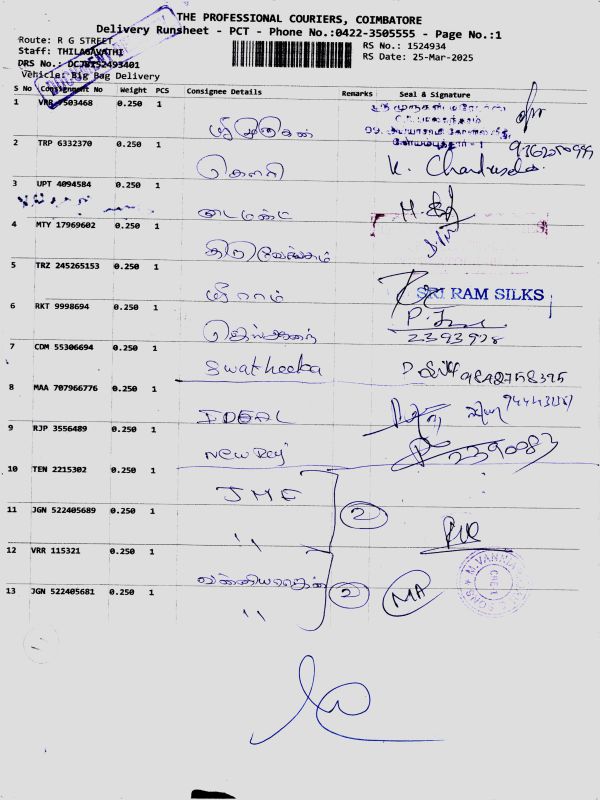 THE PROFESSIONAL COURIERS, COIMBATORE
Delivery Runsheet - PCT - Phone No.:0422-3505555 - Page No.:1
Route: R G STREET
RS No.: 1524934
Staff: THILAGAVATHI
RS Date: 25-Mar-2025
DRS No.: DCJBT52493401
Vehicle: Big Bag Delivery
S No Consignment No Weight PCS Consignee Details Remarks Seal & Signature
1 VRR 7503468 0.250 1
ஸ்ரீ முருகன்
2 TRP 6332370 0.250 1
கௌரி K. Chandrasekar
3 UPT 4094584 0.250 1
டைமண்ட்
4 MTY 17969602 0.250 1
திருவேங்கடம்
5 TRZ 245265153 0.250 1
ஸ்ரீ ராம் SRI RAM SILKS
6 RKT 9998694 0.250 1
2393928
7 CDM 55306694 0.250 1
Swatheeka 9848758395
8 MAA 707966776 0.250 1
IDEAL
9 RJP 3556489 0.250 1
New Rej 2390083
10 TEN 2215302 0.250 1
JME
11 JGN 522405689 0.250 1 2
"
12 VRR 115321 0.250 1
13 JGN 522405681 0.250 1 2 MA
"